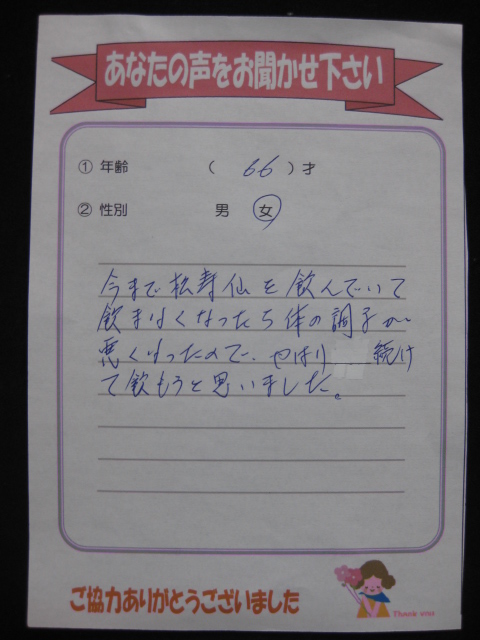 あなたの声をお聞かせ下さい
① 年齢 ( 66 ) 才
② 性別 男 女
今まで松寿仙を飲んでいて
飲まなくなったら体の調子が
悪くなったので、やはり 続け
て飲もうと思いました。
ご協力ありがとうございました
Thank you